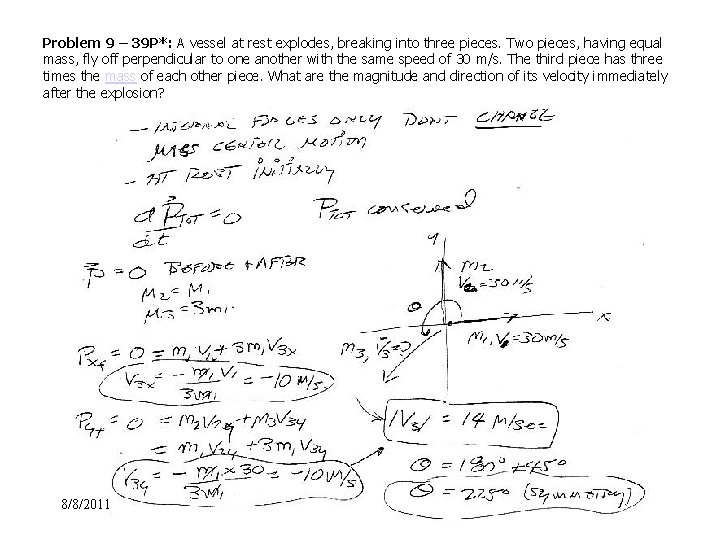 Problem 9 – 39P*: A vessel at rest explodes, breaking into three pieces. Two pieces, having equal
mass, fly off perpendicular to one another with the same speed of 30 m/s. The third piece has three
times the mass of each other piece. What are the magnitude and direction of its velocity immediately
after the explosion?
- INTERNAL FORCES ONLY DONT CHANGE
MASS CENTER MOTION
- AT REST INITIALLY
dP⃗TOT/dt = 0 PTOT conserved
P⃗T = 0 BEFORE + AFTER
M2 = M1
M3 = 3m1
y
M2
V2 = 30 M/S
θ
x
M1, V1 = 30 m/s
M3, V3 = ?
Pxf = 0 = m1V1 + 3m1V3x
V3x = - m1V1/3m1 = -10 M/S
Pyf = 0 = M2V2y + M3V3y
= m1V2y + 3m1V3y
V3y = - m1 x 30/3m1 = -10 M/S
|V3| = 14 M/sec
θ = 180° + 45°
θ = 225° (symmetry)
8/8/2011